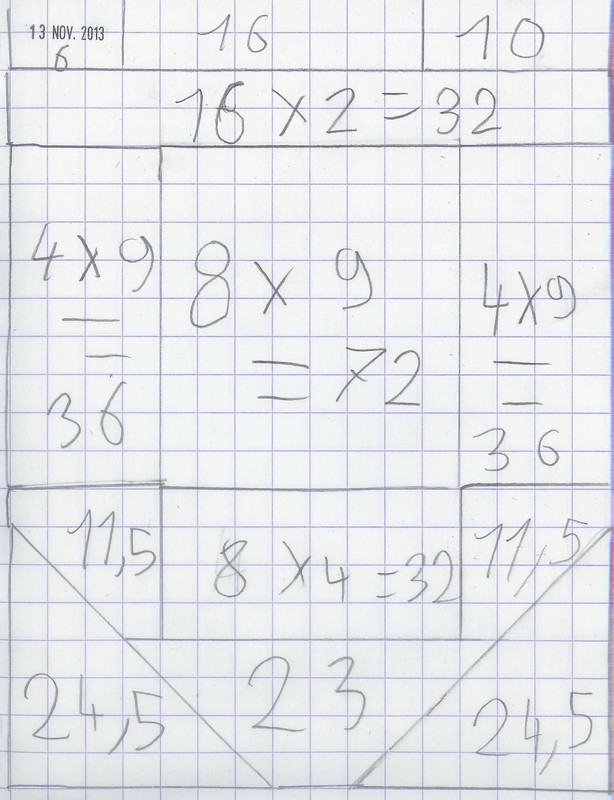 13 NOV. 2013
6
16
10
16 × 2 = 32
4 × 9
=
36
8 × 9
= 72
4 × 9
=
36
11,5
8 × 4 = 32
11,5
24,5
23
24,5